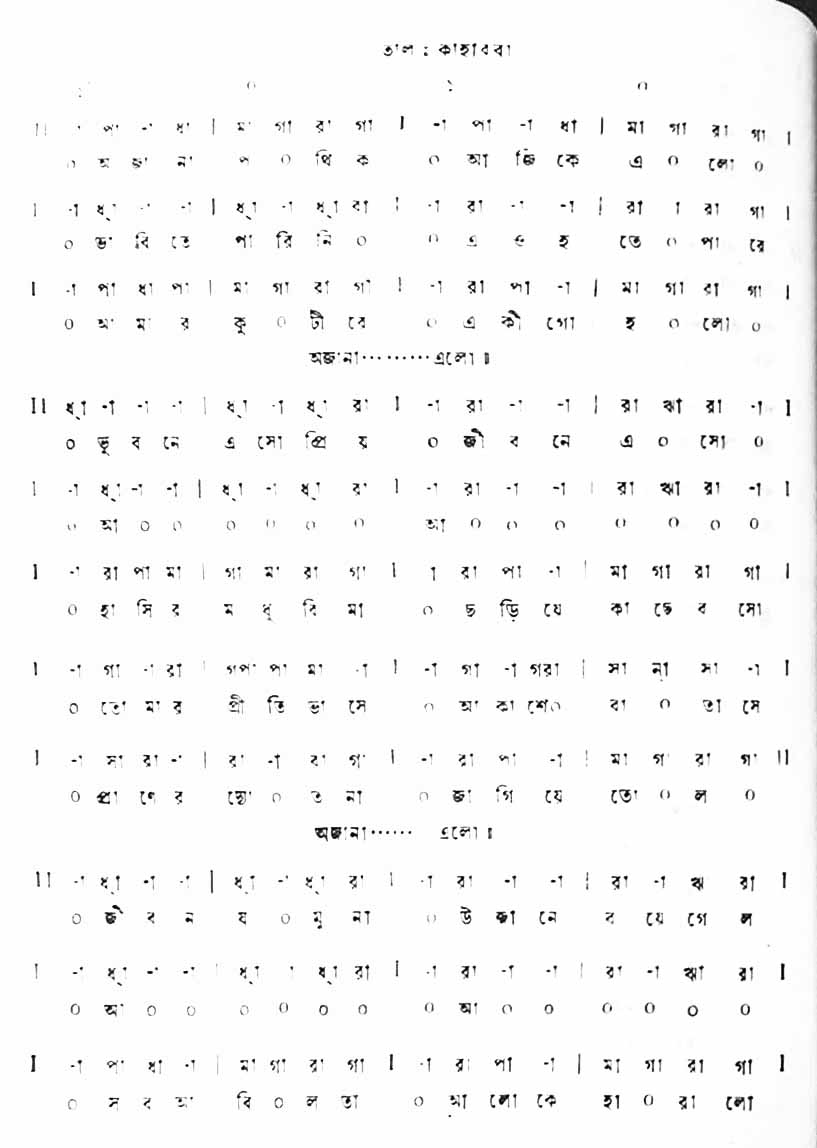 তাল : কাহারবা
১ ০ ১ ০
II -া পা -া ধা | মা গা রা গা I -া পা -া ধা | মা গা রা গা I
০ অ জা না প ০ থি ক ০ আ জি কে এ ০ লো ০
I -া ধ্া -া -া | ধ্া -া ধ্া রা I -া রা -া -া | রা া রা গা I
০ ভা বি তে পা রি নি ০ ০ এ ও হ তে ০ পা রে
I -া পা ধা পা | মা গা রা গা I -া রা পা -া | মা গা রা গা I
০ আ মা র কু ০ টী রে ০ এ কী গো হ ০ লো ০
অজানা·········এলো॥
II ধ্া -া -া -া | ধ্া -া ধ্া রা I -া রা -া -া | রা ঋা রা -া I
০ ভূ ব নে এ সো প্রি য় ০ জী ব নে এ ০ সো ০
I -া ধ্া -া -া | ধ্া -া ধ্া রা I -া রা -া -া | রা ঋা রা -া I
০ আ ০ ০ ০ ০ ০ ০ আ ০ ০ ০ ০ ০ ০ ০
I -া রা পা মা | গা মা রা গা I া রা পা -া | মা গা রা গা I
০ হা সি র ম ধু রি মা ০ ছ ড়ি যে কা ছে ব সো
I -া গা -া রা | গপা পা মা -া I -া গা -া গরা | সা ন্া সা -া I
০ তো মা র প্রী তি ভা সে ০ আ কা শে০ বা ০ তা সে
I -া সা রা -া | রা -া রা গা I -া রা পা -া | মা গা রা গা II
০ প্রা ণে র দ্যো ০ ত না ০ জা গি যে তো ০ ল ০
অজানা······ এলো॥
II -া ধ্া -া -া | ধ্া -া ধ্া রা I -া রা -া -া | রা -া ঋ রা I
০ জী ব ন য ০ মু না ০ উ জা নে ব যে গে ল
I -া ধ্া -া -া | ধ্া া ধ্া রা I -া রা -া -া | রা -া ঋা রা I
০ আ ০ ০ ০ ০ ০ ০ ০ আ ০ ০ ০ ০ ০ ০
I -া পা ধা -া | মা গা রা গা I -া রা পা -া | মা গা রা গা I
০ স ব আ বি ০ ল তা ০ আ লো কে হা ০ রা লো